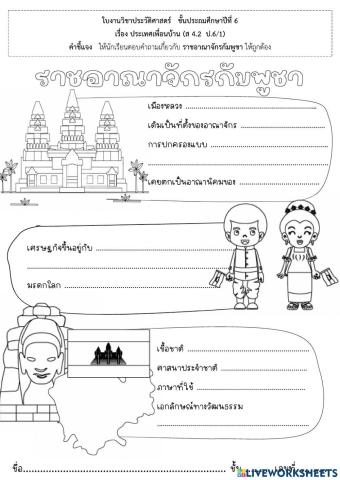 ใบงานวิชาประวัติศาสตร์ ชั้นประถมศึกษาปีที่ 6
เรื่อง ประเทศเพื่อนบ้าน (ส 4.2 ป.6/1)
คำชี้แจง ให้นักเรียนตอบคำถามเกี่ยวกับ ราชอาณาจักรกัมพูชา ให้ถูกต้อง
ราชอาณาจักรกัมพูชา
เมืองหลวง
เดิมเป็นที่ตั้งของอาณาจักร
การปกครองแบบ
เคยตกเป็นอาณานิคมของ
เศรษฐกิจขึ้นอยู่กับ
มรดกโลก
เชื้อชาติ
ศาสนาประจำชาติ
ภาษาที่ใช้
เอกลักษณ์ทางวัฒนธรรม
ชื่อ ชั้น เลขที่
LIVEWORKSHEETS